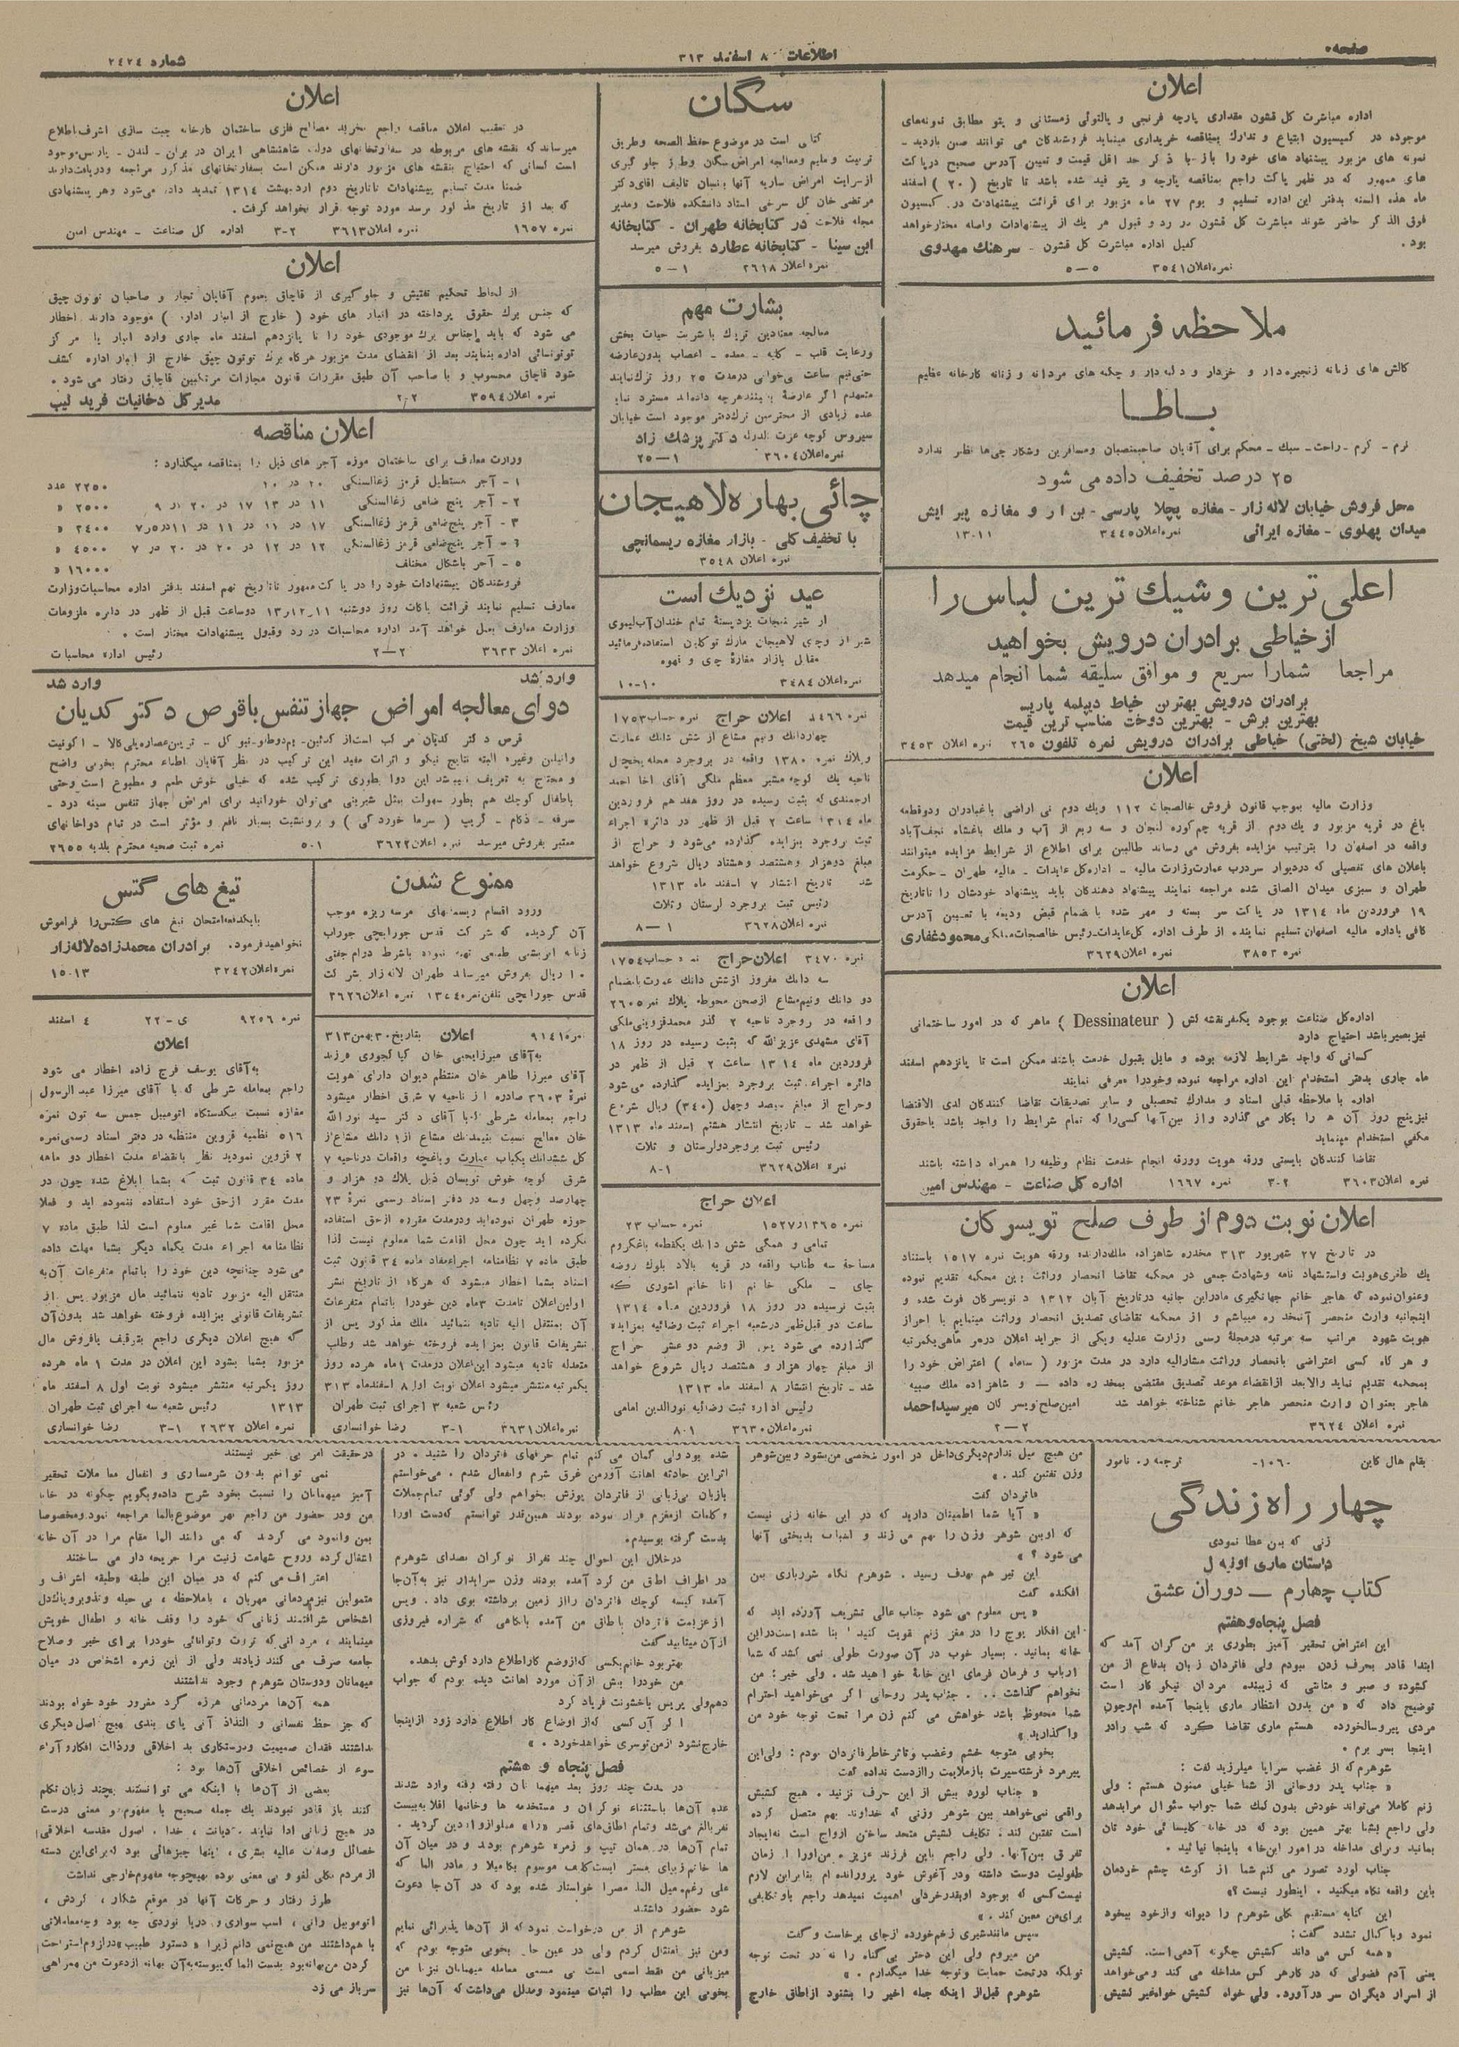 صفحه
اطلاعات ۸ اسفند ۳۱۳
شماره ۲۴۲۴
اعلان
اداره مباشرت کل قشون مقداری پارچه فرنجی و پالتوئی زمستانی و پتو مطابق نمونه‌های
موجوده در کمیسیون ابتیاع و تدارک بمناقصه خریداری مینماید فروشندگان می توانند ضمن بازدید -
نمونه های مزبور پیشنهاد های خود را با ذکر حد اقل قیمت و تعیین آدرس صحیح در پاکت
های ممهور که در ظهر پاکت راجع بمناقصه پارچه و پتو قید شده باشد تا تاریخ ( ۲۰ ) اسفند
ماه هذه السنه بدفتر این اداره تسلیم و یوم ۲۷ ماه مزبور برای قرائت پیشنهادات در کمیسیون
فوق الذکر حاضر شوند مباشرت کل قشون در رد و قبول هر یک از پیشنهادات واصله مختار خواهد
بود . کفیل اداره مباشرت کل قشون - سرهنگ مهدوی
نمره اعلان ۳۵۴۱ ۵-۵
ملاحظه فرمائید
کالش های زنانه زنجیره‌دار و خزدار و دله‌دار و چکمه های مردانه و زنانه کارخانه عظیم
باطا
نرم - گرم - راحت - سبک - محکم برای آقایان صاحبمنصبان و مسافرین و شکارچی‌ها نظیر ندارد
۲۵ درصد تخفیف داده می شود
محل فروش خیابان لاله زار - مغازه پچلا پارسی - بن‌ار و مغازه پیرایش
میدان پهلوی - مغازه ایرانی نمره اعلان ۳۴۴۵ ۱۱-۱۳
اعلی ترین و شیک ترین لباس را
از خیاطی برادران درویش بخواهید
مراجعا شمارا سریع و موافق سلیقه شما انجام میدهد
برادران درویش بهترین خیاط دیپلمه پاریس
بهترین برش - بهترین دوخت مناسب ترین قیمت
خیابان شیخ (لختی) خیاطی برادران درویش نمره تلفون ۲۶۵ نمره اعلان ۳۴۵۳
اعلان
وزارت مالیه بموجب قانون فروش خالصجات ۱۱۲
باغ در قریه مزبور و یک دوم از قریه چم کوره لنجان و سه ربع از آب و ملک باغشاه نجف‌آباد
واقعه در اصفهان را بترتیب مزایده بفروش می رساند طالبین برای اطلاع از شرایط مزایده میتوانند
باعلان های تفصیلی که در دیوار سردرب عمارت وزارت مالیه - اداره کل عایدات - مالیه طهران - حکومت
طهران و سبزی میدان الصاق شده مراجعه نمایند پیشنهاد دهندگان باید پیشنهاد خودشان را تا تاریخ
۱۹ فروردین ماه ۱۳۱۴ در پاکت سر بسته و مهر شده با ضمام قبض ودیعه با تعیین آدرس
کافی باداره مالیه اصفهان تسلیم نمایند از طرف اداره کل عایدات - رئیس خالصجات ملکی محمود غفاری
نمره ۳۸۵۳ نمره اعلان ۳۶۲۹
اعلان
اداره کل صناعت بوجود یکنفر نقشه کش ( Dessinateur ) ماهر که در امور ساختمانی
نیز بصیر باشد احتیاج دارد
کسانی که واجد شرایط لازمه بوده و مایل بقبول خدمت باشند ممکن است تا پانزدهم اسفند
ماه جاری بدفتر استخدام این اداره مراجعه نموده و خود را معرفی نمایند
اداره با ملاحظه قبلی اسناد و مدارک تحصیلی و سایر تصدیقات تقاضا کنندگان لدی الاقتضا
نیز پنج روز آن ها را بکار می گذارد و از بین آنها کسی را که تمام شرایط را واجد باشد با حقوق
مکفی استخدام مینماید
تقاضا کنندگان بایستی ورقه هویت و ورقه انجام خدمت نظام وظیفه را همراه داشته باشند
نمره اعلان ۳۶۰۳ ۲-۳ نمره ۱۶۶۷ اداره کل صناعت - مهندس امین
اعلان نوبت دوم از طرف صلح تویسرکان
در تاریخ ۲۷ شهریور ۳۱۳ مخدره شاهزاده ملک دارنده ورقه هویت نمره ۱۵۱۷ باستناد
یک طغری هویت و استشهاد نامه و شهادت جمعی در محکمه تقاضا انحصار وراثت باین محکمه تقدیم نموده
وعنوان نموده که هاجر خانم جهانگیری مادر این جانبه در تاریخ آبان ۱۳۱۲ در تویسرکان فوت شده و
اینجانبه وارث منحصر آنمخدره میباشم و از محکمه تقاضای تصدیق انحصار وراثت مینمایم با احراز
هویت شهود مراتب سه مرتبه در مجلهٔ رسمی وزارت عدلیه و یکی از جراید اعلان در هر ماهی یکمرتبه
و هر گاه کسی اعتراضی بانحصار وراثت مشارالیه دارد در مدت مزبور ( سه ماه ) اعتراض خود را
بمحکمه تقدیم نماید والا بعد از انقضاء موعد تصدیق مقتضی بمخدره داده - و شاهزاده ملک صبیه
هاجر بعنوان وارث منحصر هاجر خانم شناخته خواهد شد امین صلح تویسرکان میرسید احمد
نمره اعلان ۳۶۲۴ ۲-۲
سگان
کتابی است در موضوع حفظ الصحه و طریق
تربیت و تعلیم و معالجه امراض سگان و طرز جلوگیری
از سرایت امراض ساریه آنها بانسان تالیف آقای دکتر
مرتضی خان گل سرخی استاد دانشکده فلاحت و مدیر
مجله فلاحت در کتابخانه طهران - کتابخانه
ابن سینا - کتابخانه عطارد بفروش میرسد
نمره اعلان ۲۶۱۸ ۱-۵
بشارت مهم
معالجه معتادین تریاک با شربت حیات بخش
ورعایت قلب - کلیه - معده - اعصاب بدون عارضه
حتی نیم ساعت بی خوابی در مدت ۲۵ روز ترک نمایند
متعهدم اگر عارضهٔ ببینند هر چه داده‌اند مسترد نمایم
عده زیادی از محترمین ترک دفتر موجود است خیابان
سیروس کوچه عزت الدوله دکتر پزشک زاد
نمره اعلان ۳۶۰۴ ۱-۲۵
چائی بهاره لاهیجان
با تخفیف کلی - بازار مغازه ریسمانچی
نمره اعلان ۳۵۴۸
عید نزدیک است
از شیرینجات یزد پستهٔ تمام خندان آبلیموی
شیراز و چای لاهیجان مارک توکلیان استفاده فرمائید
مقابل بازار مغازهٔ چای و قهوه
نمره اعلان ۳۴۸۴ ۱۰-۱۰
نمره ۳۴۶۶ اعلان حراج نمره حساب ۱۷۵۳
چهار دانک و نیم مشاع از شش دانک عمارت
پلاک نمره ۱۳۸۰ واقعه در بروجرد محله یخچال
ناحیه یک کوچه مشیر معظم ملکی آقای آخا احمد
ارجمندی که بثبت رسیده در روز هفدهم فروردین
ماه ۱۳۱۴ ساعت ۲ قبل از ظهر در دائره اجراء
ثبت بروجرد بمزایده گذارده می‌شود و حراج از
مبلغ دو هزار و هشتصد و هشتاد ریال شروع خواهد
شد تاریخ انتشار ۷ اسفند ماه ۱۳۱۳
رئیس ثبت بروجرد لرستان و ثلاث
نمره اعلان ۳۶۲۸ ۱-۸
نمره ۳۴۷۰ اعلان حراج نمره حساب ۱۷۵۴
سه دانک مفروز از شش دانک عمارت بانضمام
دو دانک و نیم مشاع از صحن محوطه پلاک نمره ۲۶۰۵
واقعه در بروجرد ناحیه ۲ گذر محمد قزوینی ملکی
آقای مشهدی عزیزالله که بثبت رسیده در روز ۱۸
فروردین ماه ۱۳۱۴ ساعت ۲ قبل از ظهر در
دائره اجراء ثبت بروجرد بمزایده گذارده می‌شود
وحراج از مبلغ سیصد و چهل (۳۴۰) ریال شروع
خواهد شد - تاریخ انتشار هشتم اسفند ماه ۱۳۱۳
رئیس ثبت بروجرد ولرستان و ثلاث
نمره اعلان ۳۶۲۹ ۱-۸
اعلان حراج
نمره ۱۵۲۷/۱۳۶۵ نمره حساب ۲۳
تمامی و همگی شش دانک یکقطعه باغ کروم
مساحة سه طناب واقعه در قریه بالاد بلوک روضه
چای - ملکی خانم آنا خانم آشوری که
بثبت نرسیده در روز ۱۸ فروردین ماه ۱۳۱۴
ساعت دو قبل ظهر در شعبه اجراء ثبت رضائیه بمزایده
گذارده می شود پس از وضع دو عشر حراج
از مبلغ چهار هزار و هشتصد ریال شروع خواهد
شد - تاریخ انتشار ۸ اسفند ماه ۱۳۱۳
رئیس اداره ثبت رضائیه نورالدین امامی
نمره اعلان ۳۶۳۰ ۱-۸
اعلان
در تعقیب اعلان مناقصه راجع بخرید مصالح فلزی ساختمان کارخانه چیت سازی اشرف اطلاع
میرساند که نقشه های مربوطه در سفارتخانهای دولت شاهنشاهی ایران در برلن - لندن - پاریس موجود
است کسانی که احتیاج بنقشه های مزبور دارند ممکن است بسفارتخانهای مذکور مراجعه و دریافت دارند
ضمنا مدت تسلیم پیشنهادات تا تاریخ دوم اردیبهشت ۱۳۱۴ تمدید داده می‌شود وهر پیشنهادی
که بعد از تاریخ مذکور برسد مورد توجه قرار نخواهد گرفت .
نمره ۱۶۵۷ نمره اعلان ۳۶۱۳ ۲-۳ اداره کل صناعت - مهندس امین
اعلان
از لحاظ تحکیم تفتیش و جلوگیری از قاچاق بعموم آقایان تجار و صاحبان توتون چپق
که جنس برک حقوق پرداخته در انبار های خود ( خارج از انبار اداره ) موجود دارند اخطار
می شود که باید اجناس برک موجودی خود را تا پانزدهم اسفند ماه جاری وارد انبار یا مرکز
توتونسائی اداره بنمایند بعد از انقضای مدت مزبور هرگاه برک توتون چپق خارج از انبار اداره کشف
شود قاچاق محسوب و با صاحب آن طبق مقررات قانون مجازات مرتکبین قاچاق رفتار می شود .
نمره اعلان ۳۵۹۴ ۲-۲ مدیر کل دخانیات فرید لیپ
اعلان مناقصه
وزارت معارف برای ساختمان موزه آجر های ذیل را بمناقصه میگذارد :
۱ - آجر مستطیل قرمز زغالسنگی ۲۰ در ۱۰ ۲۲۵۰ عدد
۲ - آجر پنج ضلعی زغالسنگی ۱۱ در ۱۳ در ۱۷ در ۲۰ در ۹ ۲۵۰۰ »
۳ - آجر پنج‌ضلعی قرمز زغالسنگی ۱۷ در ۱۱ در ۱۱ در ۱۱ در ۷ر۵ ۲۴۰۰ »
۴ - آجر پنج‌ضلعی قرمز زغالسنگی ۱۲ در ۱۲ در ۲۰ در ۲۰ در ۷ ۴۵۰۰ »
۵ - آجر باشکال مختلف ۱۶۰۰۰ »
فروشندگان پیشنهادات خود را در پاکت ممهور تا تاریخ نهم اسفند بدفتر اداره محاسبات وزارت
معارف تسلیم نمایند قرائت پاکات روز دوشنبه ۱۱ر۱۲ر۱۳ دو ساعت قبل از ظهر در دایره ملزومات
وزارت معارف بعمل خواهد آمد اداره محاسبات در رد وقبول پیشنهادات مختار است .
نمره اعلان ۳۶۳۳ ۲-۲ رئیس اداره محاسبات
وارد شد وارد شد
دوای معالجه امراض جهاز تنفس با قرص دکتر کدیان
وانیلین وغیره البته نتایج نیکو و اثرات مفید این ترکیب در نظر آقایان اطباء محترم بخوبی واضح
و محتاج به تعریف نمیباشد این دوا بطوری ترکیب شده که خیلی خوش طعم و مطبوع است و حتی
باطفال کوچک هم بطور سهولت بمثل شیرینی می‌توان خورانید برای امراض جهاز تنفس سینه درد -
سرفه - ذکام - گریپ ( سرما خوردگی ) و برونشیت بسیار نافع و مؤثر است در تمام دواخانهای
معتبر بفروش میرسد نمره اعلان ۳۶۲۲ ۱-۵ نمره ثبت صحیه محترم بلدیه ۲۶۵۵
ممنوع شدن
ورود اقسام ریسمانهای هرسه ریزه موجب
آن گردیده که شرکت قدس جورابچی جوراب
زنانه ابریشمی طبیعی تهیه نموده باشرط دوام جفتی
۱۰ ریال بفروش میرساند طهران لاله زار شرکت
قدس جورابچی تلفن نمره ۱۳۷۴ نمره اعلان ۳۶۲۶
تیغ های گتس
با یکدفعه امتحان تیغ های گتس را فراموش
نخواهید فرمود. برادران محمدزاده لاله زار
نمره اعلان ۳۲۴۲ ۱۳-۱۵
نمره ۹۱۴۱ اعلان بتاریخ ۳۰ بهمن ۳۱۳
به آقای میرزا یحیی خان کیا کجوری فرزند
آقای میرزا طاهر خان منتظم دیوان دارای هویت
نمرهٔ ۳۶۰۳ صادره از ناحیه ۷ شرق اخطار میشود
راجع بمعامله شرطی که با آقای دکتر سید نورالله
خان معالج نسبت بنیمدانک مشاع از ۱ دانک مشاع از
کل ششدانک یکباب عمارت و باغچه واقعات در ناحیه ۷
شرق کوچه خوش نویسان ذیل پلاک دو هزار و
چهارصد و چهل و سه در دفتر اسناد رسمی نمرهٔ ۲۳
حوزه طهران نموده‌اید و در مدت مقرره از حق استفاده
نکرده اید چون محل اقامت شما معلوم نیست لذا
طبق ماده ۷ نظامنامه اجراء مفاد ماده ۳۴ قانون ثبت
اسناد بشما اخطار میشود که هرگاه از تاریخ نشر
اولین اعلان تا مدت ۳ ماه دین خود را باتمام متفرعات
آن بمنتقل الیه تادیه ننمائید ملک مذکور پس از
تشریفات قانون بمزایده فروخته خواهد شد وطلب
متعهدله تادیه میشود این اعلان در مدت ۱ ماه هرده روز
یکمرتبه منتشر میشود اعلان نوبت اول ۸ اسفندماه ۳۱۳
رئس شعبه ۳ اجرای ثبت طهران
نمره اعلان ۳۶۳۱ ۱-۳ رضا خوانساری
نمره ۹۲۵۶ ی - ۲۲ ۴ اسفند
اعلان
به آقای یوسف فرج زاده اخطار می شود
راجع بمعامله شرطی که با آقای میرزا عبدالرسول
مغازه نسبت بیکدستگاه اتومبیل جمس سه تون نمره
۵۱۶ نظمیه قزوین منتظمه در دفتر اسناد رسمی نمره
۲ قزوین نمودید نظر بانقضاء مدت اخطار دو ماهه
ماده ۳۴ قانون ثبت که بشما ابلاغ شده چون در
مدت مقرر از حق خود استفاده ننموده اید و فعلا
محل اقامت شما غیر معلوم است لذا طبق ماده ۷
نظامنامه اجراء مدت یکماه دیگر بشما مهلت داده
می شود چنانچه دین خود را باتمام متفرعات آن به
منتقل الیه مزبور تادیه ننمائید مال مزبور پس از
تشریفات قانونی بمزایده فروخته خواهد شد بدون آن
که هیچ اعلان دیگری راجع بتوقیف یا فروش مال
مزبور بشما بشود این اعلان در مدت ۱ ماه هرده
روز یکمرتبه منتشر میشود نوبت اول ۸ اسفند ماه
۱۳۱۳ رئیس شعبه سه اجرای ثبت طهران
نمره اعلان ۲۶۳۲ ۱-۳ رضا خوانساری
بقلم هال کاین -۱۰۶۰ ترجمه ر. نامور
چهار راه زندگی
زنی که بمن عطا نمودی
داستان ماری اونیل
کتاب چهارم - دوران عشق
فصل پنجاه و هفتم
این اعتراض تحقیر آمیز بطوری بر من گران آمد که
ابتدا قادر بحرف زدن نبودم ولی فاتردان زبان بدفاع از من
گشوده و صبر و متانتی که زیبنده مردان نیکوکار است
توضیح داد که « من بدون انتظار ماری باینجا آمده‌ام و چون
مردی پیر و سالخورده هستم ماری تقاضا کرد که شب را در
اینجا بسر برم .
شوهرم که از غضب سراپا میلرزید گفت :
« جناب پدر روحانی از شما خیلی ممنون هستم : ولی
زنم کاملا می‌تواند خودش بدون کمک شما جواب سئوال مرا بدهد
ولی راجع بشما بهتر همین بود که در خانه کلیسائی خود تان
بمانید و برای مداخله در امور این خانه باینجا نیائید .
جناب لورد تصور می کنم شما از گوشه چشم خودتان
باین واقعه نگاه میکنید . اینطور نیست ؟»
این کنایه مستقیم بکلی شوهرم را دیوانه و از خود بیخود
نمود و با کمال تشدد گفت :
« همه کس می داند کشیش چگونه آدمی است. کشیش
یعنی آدم فضولی که در کار هر کس مداخله می کند و می‌خواهد
از اسرار دیگران سر در آورد. ولی خواه کشیش خواه غیر کشیش
من هیچ میل ندارم دیگری داخل در امور شخصی من بشود و بین شوهر
وزن تفتین کند . »
فاتردان گفت
« آیا شما اطمینان دارید که در این خانه زنی نیست
که او بین شوهر وزن را بهم می زند و اسباب بدبختی آنها
می شود ؟ »
این تیر هم بهدف رسید . شوهرم نگاه شرر باری بمن
افکنده گفت
« پس معلوم می شود جناب عالی تشریف آورده اید که
این افکار پوچ را در مغز زنم تقویت کنید ! بنا شده است در این
خانه بمانید. بسیار خوب در آن صورت طولی نمی کشد که شما
ارباب و فرمان فرمای این خانهٔ خواهید شد. ولی خیر : من
نخواهم گذاشت . . . جناب پدر روحانی اگر می‌خواهید احترام
شما محفوظ باشد خواهش می کنم زن مرا تحت توجه خود من
واگذارید »
بخوبی متوجه خشم وغضب وتاثر خاطر فاتردان بودم : ولی این
پیرمرد فرشته سیرت باز ملایمت را از دست نداده گفت
« جناب لورد بیش از این حرف نزنید . هیچ کشیش
واقعی نمی‌خواهد بین شوهر وزنی که خداوند بهم متصل کرده
است تفتین کند . تکلیف کشیش متحد ساختن ازواج است نه ایجاد
تفرقه بین آنها . ولی راجع باین فرزند عزیز . من او را از زمان
طفولیت دوست داشته ودر آغوش خود پرورانده‌ام بنابراین لازم
نیست کسی که بوجود او بقدر خردلی اهمیت نمیدهد راجع باو تکلیفی
برای من معین کند . »
سپس مانند شیری زخم‌خورده از جای برخاست و گفت
من میروم ولی این دختر بی‌گناه را نه در تحت توجه
تو بلکه در تحت حمایت و توجه خدا میگذارم . »
شوهرم قبل از اینکه جمله اخیر را بشنود از اطاق خارج
شده بود ولی گمان می کنم تمام حرفهای فاتردان را شنید . در
اثر این حادثه اهانت آور من غرق شرم و انفعال شدم . می‌خواستم
بازبان بی‌زبانی از فاتردان پوزش بخواهم ولی گوئی تمام جملات
و کلمات از مغزم فرار نموده بودند همین‌قدر توانستم که دست او را
بدست گرفته ببوسم.
در خلال این احوال چند نفر از نوکران بصدای شوهرم
در اطراف اطاق من گرد آمده بودند وزن سرایدار نیز به آن‌جا
آمده کیسه کوچک فاتردان را از زمین برداشته بوی داد . وپس
از عزیمت فاتردان باطاق من آمده با نگاهی که شراره فیروزی
از آن میتابید گفت
بهتر بود خانم بکسی که از وضع کار اطلاع دارد گوش بدهد.
من خود را بیش از آن مورد اهانت دیده بودم که جواب
دهم ولی پریس باخشونت فریاد کرد
اگر آن کسی که از اوضاع کار اطلاع دارد زود از اینجا
خارج نشود از من توسری خواهد خورد . »
فصل پنجاه و هشتم
در مدت چند روز بعد میهمانان رفته رفته وارد شدند
عده آن‌ها باستثناء نوکران و مستخدمه ها و خانمها اقلا به بیست
نفر بالغ می‌شد و تمام اطاق‌های قصر «را» مملو از واردین گردید.
تمام آن‌ها در همان تیپ و زمرهٔ شوهرم بودند و در میان آن
علی رغم میل الما مصرا خواستار شده بود که در آن‌جا دعوت
شود حضور داشتند
شوهرم از من درخواست نمود که از آن‌ها پذیرائی نمایم
ومن نیز امتثال کردم ولی در عین حال بخوبی متوجه بودم که
میزبانی من فقط اسمی است بی مسمی معامله میهمانان نیز با من
بخوبی این مطالب را اثبات مینمود و مدلل می‌داشت که آن‌ها نیز
در حقیقت امر بی خبر نیستند
نمی توانم بدون شرمساری و انفعال معاملات تحقیر
آمیز میهمانان را نسبت بخود شرح داده و بگویم چگونه در خانه
من ودر حضور من راجع بهر موضوع بالما مراجعه نموده ومخصوصا
بمن وانمود می کردند که می دانند الما مقام مرا در آن خانه
اشغال کرده وروح شهامت زنیت مرا جریحه دار می ساختند
اعتراف می کنم که در میان این طبقه «طبقه اشراف و
متمولین نیز مردمانی مهربان ، باملاحظه ، بی حیله وتذویر و پاکدل
اشخاص شرافتمند زنانی که خود را وقف خانه و اطفال خویش
مینمایند ، مردانی که ثروت وتوانائی خود را برای خیر و صلاح
جامعه صرف می کنند زیادند ولی از این زمره اشخاص در میان
میهمانان ودوستان شوهرم وجود نداشتند
همه آن‌ها مردمانی هرزه گرد مغرور خود خواه بودند
که جز حظ نفسانی و التذاذ آنی پای بندی بهیچ اصل دیگری
نداشتند فقدان صمیمیت و درستکاری بد اخلاقی ورذالت افکار و آراء
سوء از خصائص اخلاقی آن‌ها بود :
بعضی از آن‌ها با اینکه می توانستند بچند زبان تکلم
کنند باز قادر نبودند یک جمله صحیح با مفهوم و معنی درست
در هیچ زبانی ادا نمایند. دیانت ، خدا ، اصول مقدسه اخلاقی
خصائل وصفات عالیه بشری ، اینها چیزهائی بود که برای این دسته
از مردم بکلی لغو و بی معنی بوده بهیچوجه مفهوم خارجی نداشت
طرز رفتار و حرکات آنها در موقع شکار ، گردش ،
اتوموبیل رانی ، اسب سواری و دریا نوردی چه بود وچه معاملاتی
با هم داشتند من هیچ نمی دانم زیرا « دستور طبیب » در لزوم استراحت
کردن من بهانه بود بدست الما که پیوسته به آن بهانه از دعوت من همراهی
سر باز می زد